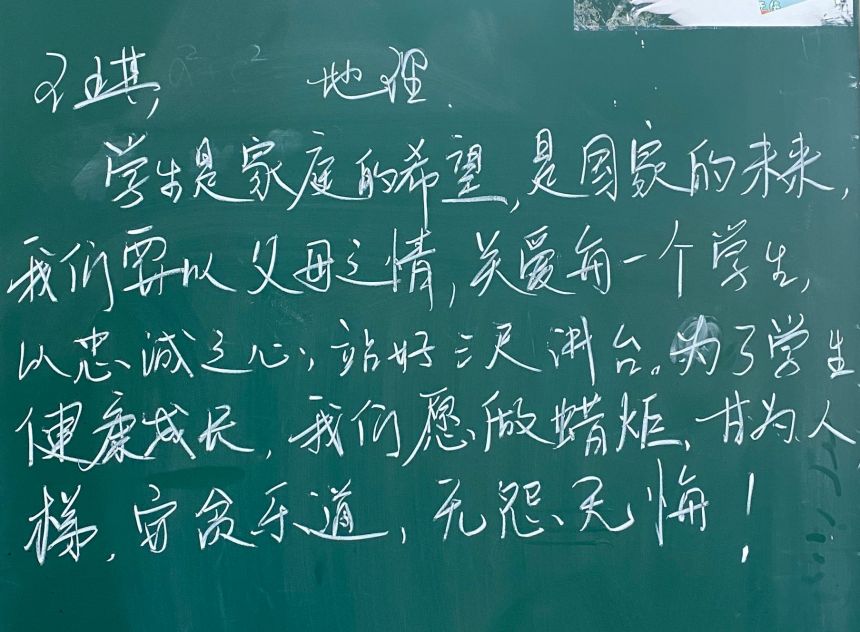 地理.
学生是家庭的希望,是国家的未来,
我们要以父母之情,关爱每一个学生,
以忠诚之心,站好三尺讲台。为了学生
健康成长,我们愿做蜡炬,甘为人
梯,安贫乐道,无怨无悔!